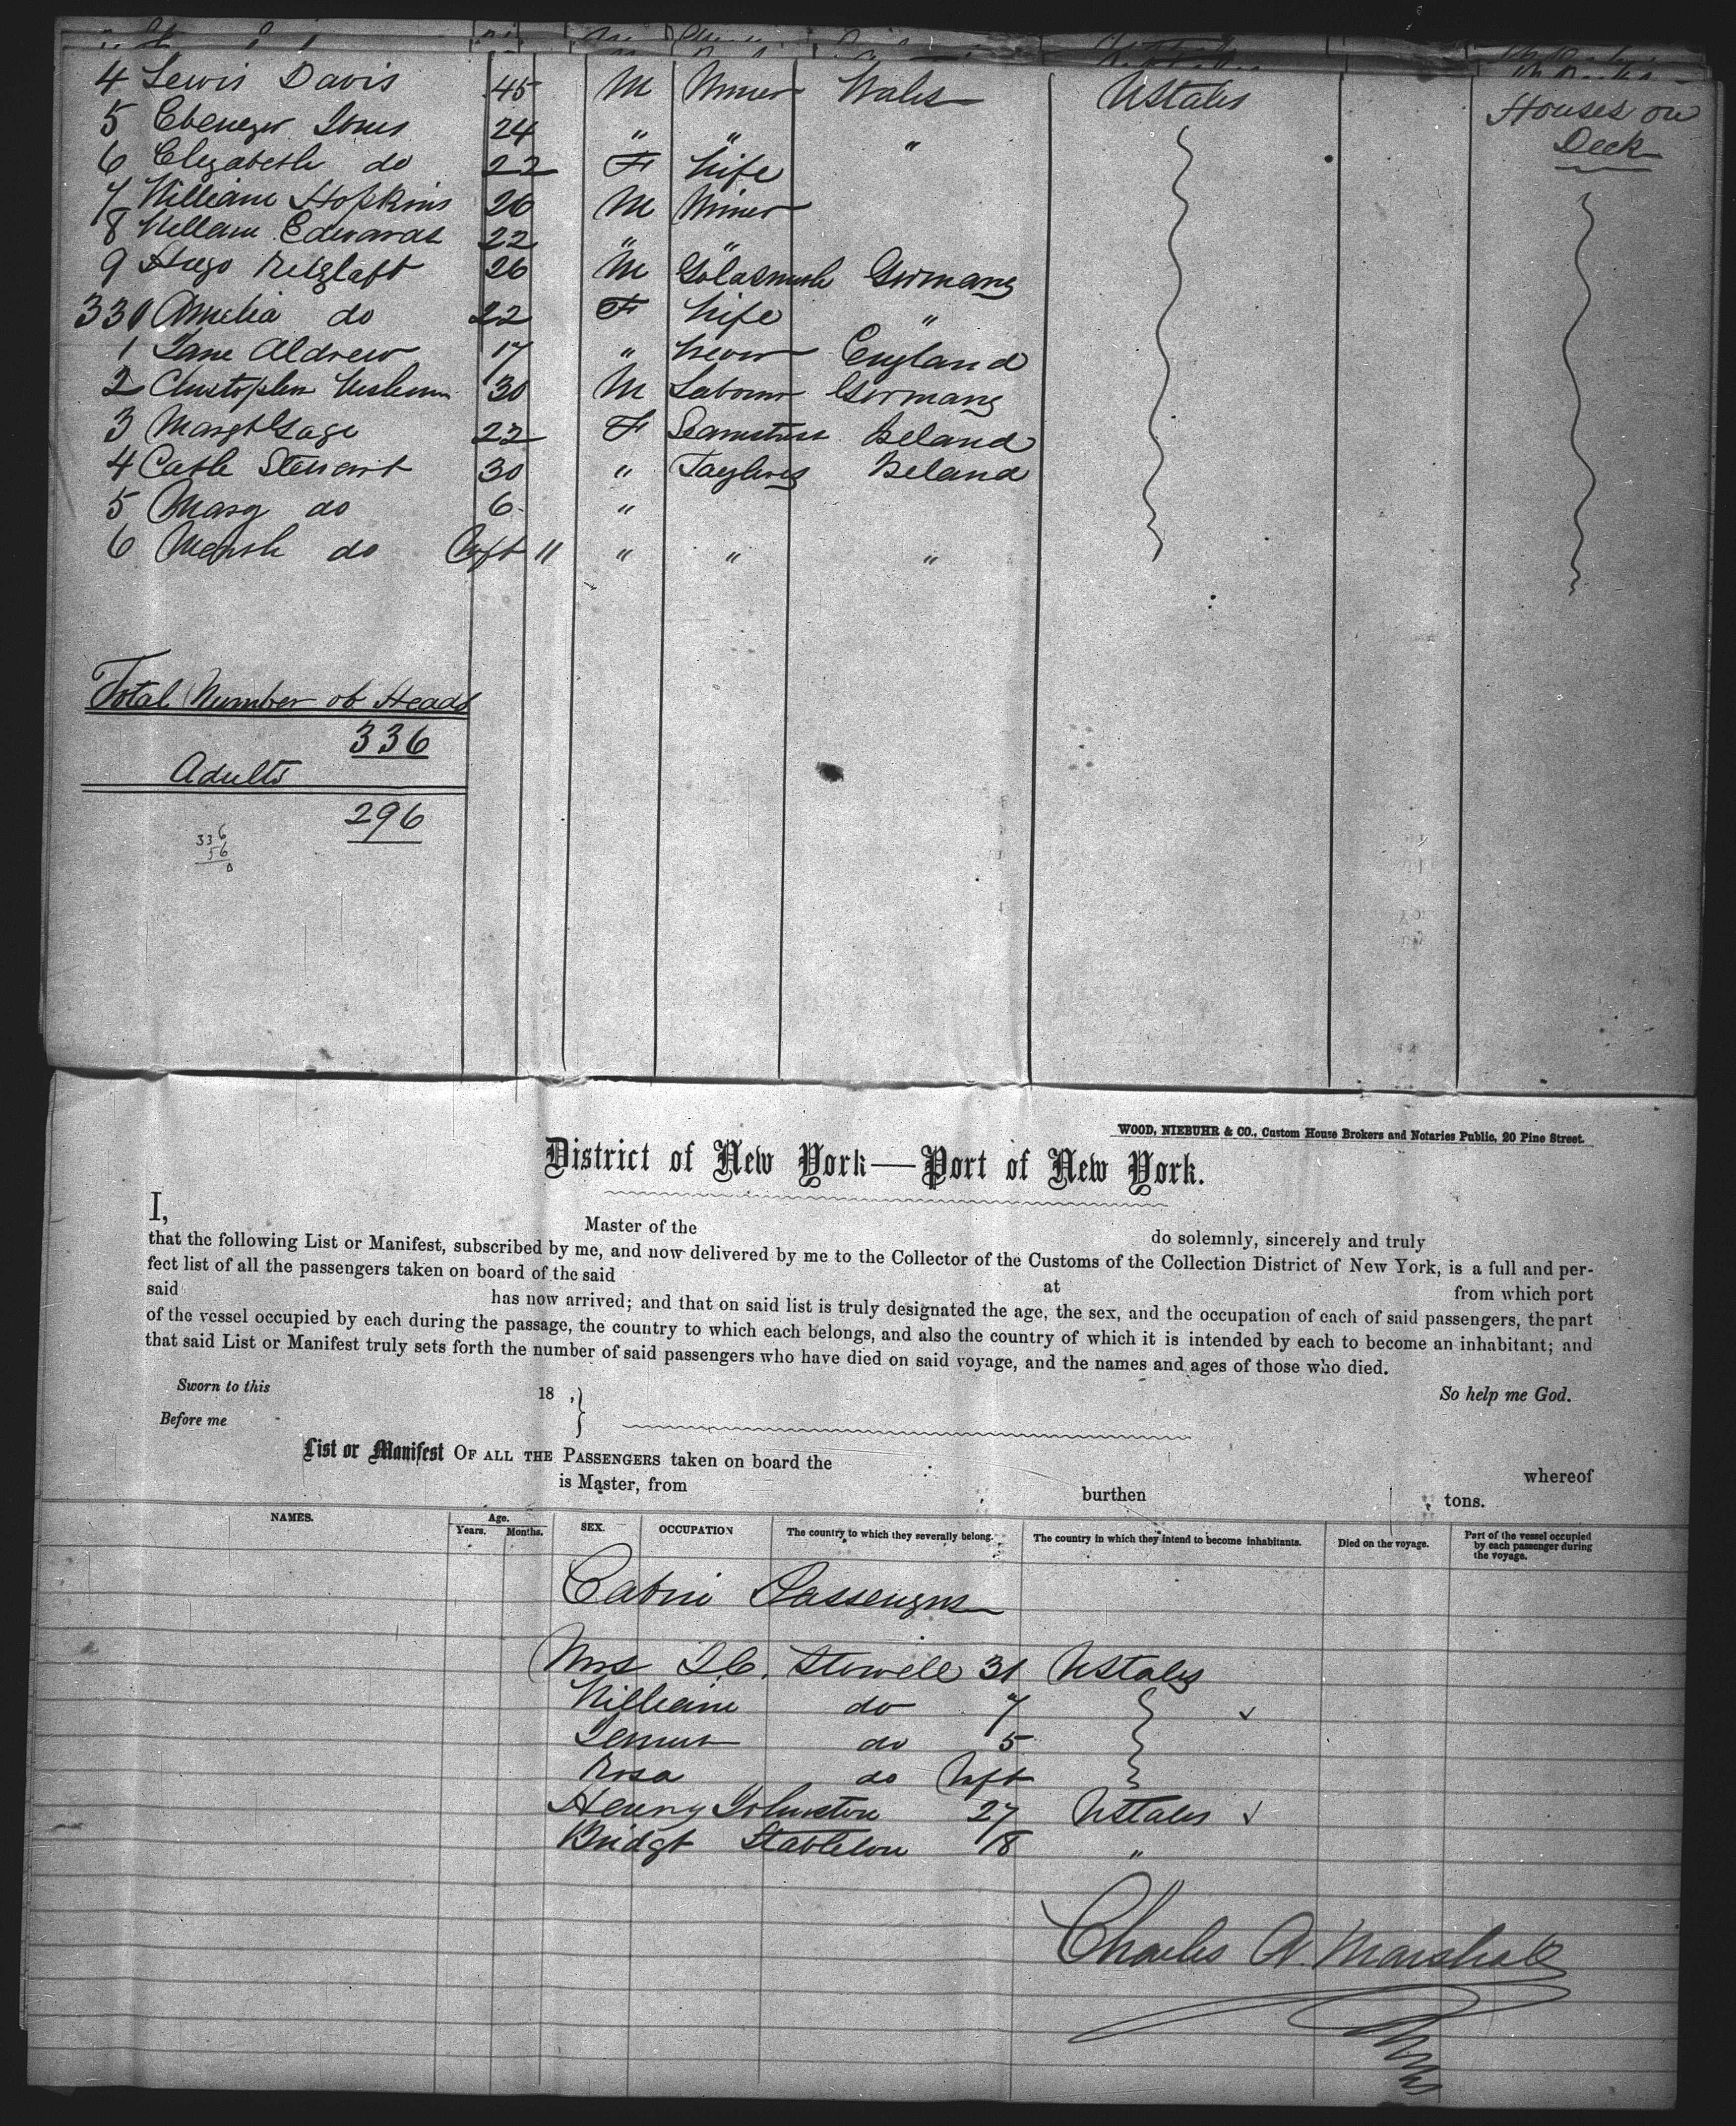 4 Lewis Davis 45 M Miner Wales UStates Houses on
5 Ebenezer Jones 24 " " " Deck
6 Elizabeth do 22 F Wife
7 William Hopkins 26 M Miner
8 William Edwards 22 " "
9 Hugo 26 M Goldsmith Germany
330 Amelia do 22 F Wife "
1 Jane Aldrew 17 " England
2 Christopher 30 M Labourer Germany
3 Margt Gage 22 F Seamstress Ireland
4 Cathe Stewart 30 " Ireland
5 Mary do 6 "
6 do Inft 11 " " "
Total Number of Heads
336
Adults
296
336
56
0
WOOD, NIEBUHR & CO., Custom House Brokers and Notaries Public, 20 Pine Street.
District of New York—Port of New York.
I, Master of the do solemnly, sincerely and truly
that the following List or Manifest, subscribed by me, and now delivered by me to the Collector of the Customs of the Collection District of New York, is a full and per-
fect list of all the passengers taken on board of the said at from which port
said has now arrived; and that on said list is truly designated the age, the sex, and the occupation of each of said passengers, the part
of the vessel occupied by each during the passage, the country to which each belongs, and also the country of which it is intended by each to become an inhabitant; and
that said List or Manifest truly sets forth the number of said passengers who have died on said voyage, and the names and ages of those who died.
Sworn to this 18 , } So help me God.
Before me
List or Manifest OF ALL THE PASSENGERS taken on board the whereof
is Master, from burthen tons.
NAMES. Age. Years. Months. SEX. OCCUPATION The country to which they severally belong. The country in which they intend to become inhabitants. Died on the voyage. Part of the vessel occupied by each passenger during the voyage.
Cabin Passengers
Mrs Stowell 31 UStates
William do 7
do 5
Rosa do Inft
Henry Johnston 27 UStates
Bridgt Stableton 18 "
Charles A. Marshall